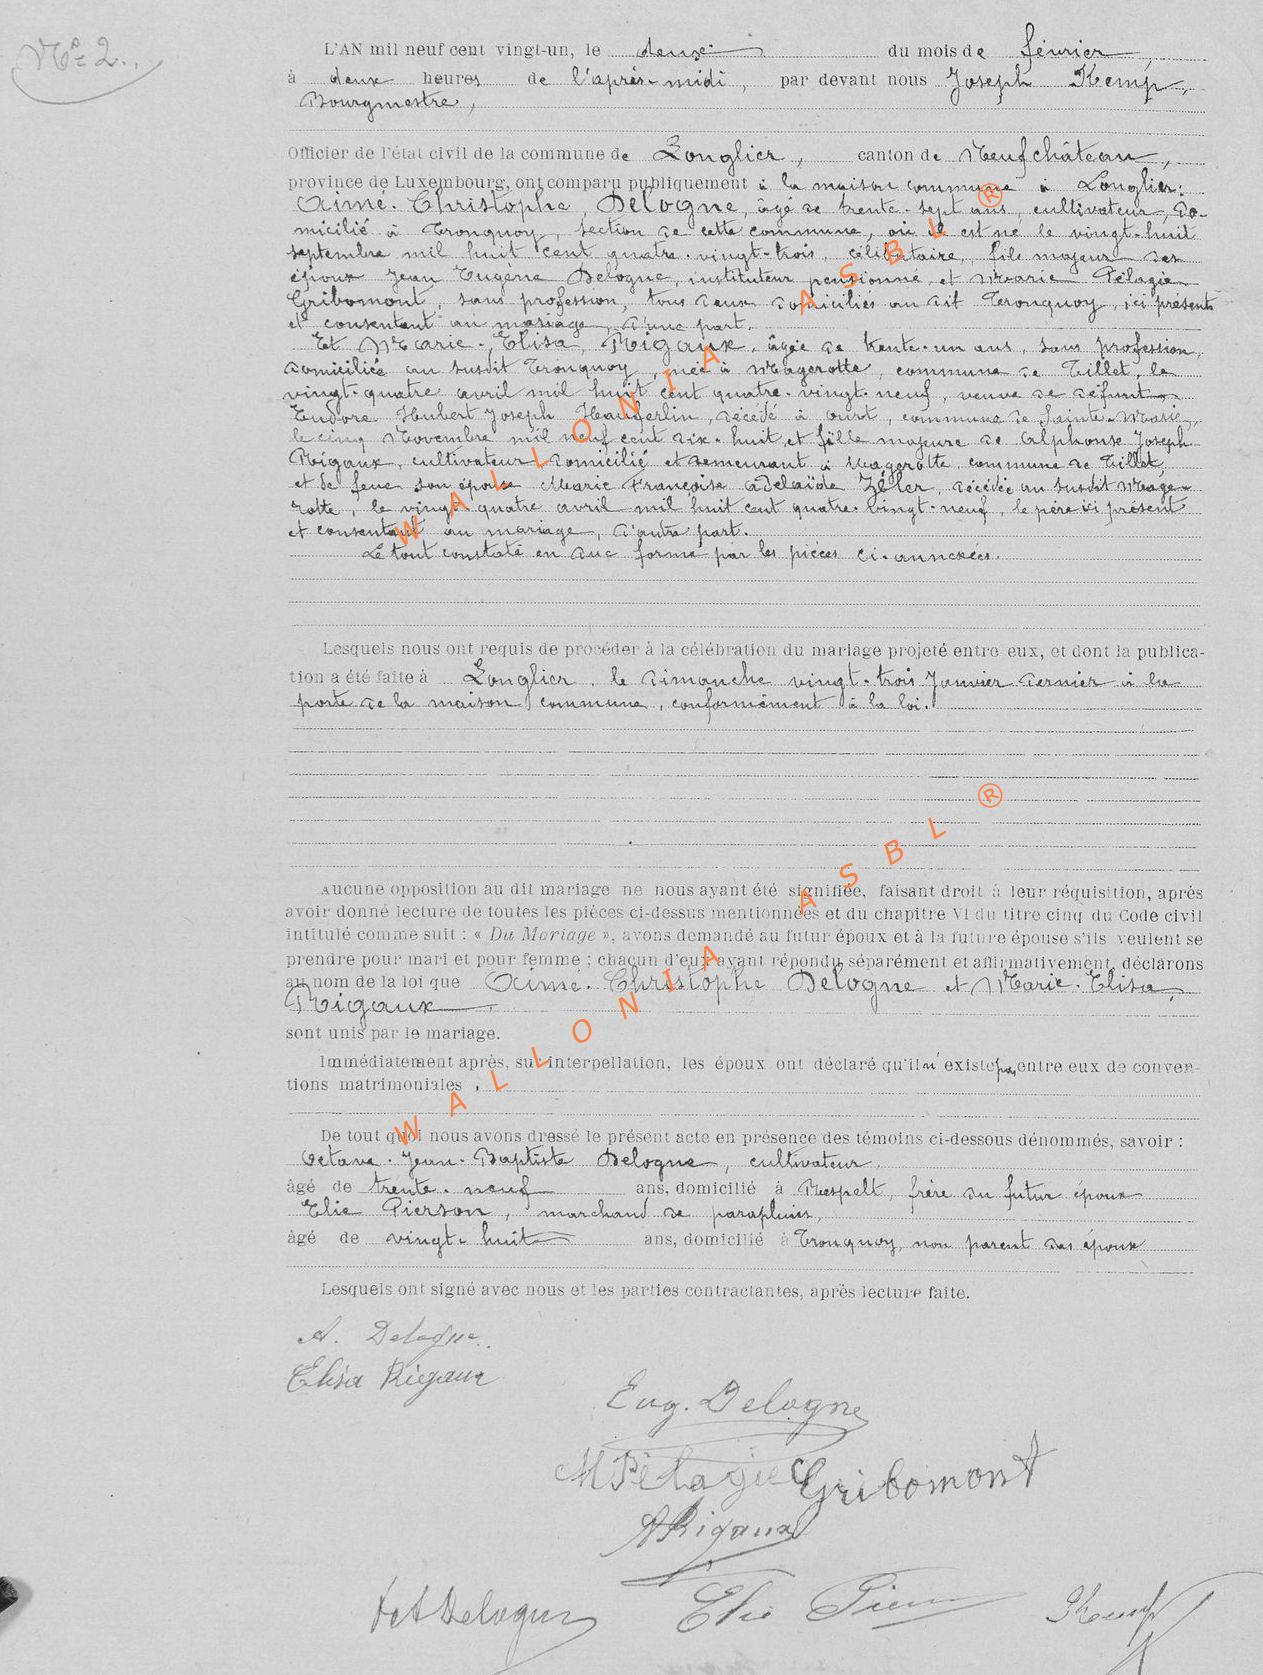 Nº 2.
L'AN mil neuf cent vingt-un, le deux du mois de février,
à deux heures de l'après-midi, par devant nous Joseph Kemp,
Bourgmestre,
Officier de l'état civil de la commune de Longlier, canton de Neufchâteau,
province de Luxembourg, ont comparu publiquement à la maison commune à Longlier:
Aimé-Christophe Delogne, âgé de trente-sept ans, cultivateur, do-
micilié à Tronquoy, section de cette commune, où il est né le vingt-huit
septembre mil huit cent quatre-vingt-trois, célibataire, fils majeur des
époux Jean Eugène Delogne, instituteur pensionné et Marie Pélagie
Gribomont, sans profession, tous deux domiciliés au dit Tronquoy, ici présents
et consentant au mariage, d'une part.
Et Marie-Elisa Rigaux, âgée de trente-un ans, sans profession,
domiciliée au susdit Tronquoy, née à Magerotte, commune de Tillet, le
vingt-quatre avril mil huit cent quatre-vingt-neuf, veuve de défunt
Eudore Hubert Joseph décédé à Ourt, commune de Sainte-Marie,
le cinq Novembre mil neuf cent dix-huit, et fille majeure de Alphonse Joseph
Rigaux, cultivateur domicilié et demeurant à Magerotte, commune de Tillet,
et de feue son épouse Marie Françoise Adelaïde Zéler, décédée au susdit Mage-
rotte, le vingt-quatre avril mil huit cent quatre-vingt-neuf, le père ici présent
et consentant au mariage, d'autre part.
Le tout constaté en due forme par les pièces ci-annexées.
Lesquels nous ont requis de procéder à la célébration du mariage projeté entre eux, et dont la publica-
tion a été faite à Longlier, le dimanche vingt-trois Janvier dernier à la
porte de la maison commune, conformément à la loi.
Aucune opposition au dit mariage ne nous ayant été signifiée, faisant droit à leur réquisition, après
avoir donné lecture de toutes les pièces ci-dessus mentionnées et du chapitre VI du titre cinq du Code civil
intitulé comme suit : « Du Mariage », avons demandé au futur époux et à la future épouse s'ils veulent se
prendre pour mari et pour femme ; chacun d'eux ayant répondu séparément et affirmativement, déclarons
au nom de la loi que Aimé-Christophe Delogne et Marie-Elisa
Rigaux
sont unis par le mariage.
Immédiatement après, sur interpellation, les époux ont déclaré qu'il n'existe pas entre eux de conven-
tions matrimoniales.
De tout quoi nous avons dressé le présent acte en présence des témoins ci-dessous dénommés, savoir :
Octave-Jean-Baptiste Delogne, cultivateur,
âgé de trente-neuf ans, domicilié à Respelt, frère du futur époux
Elie Pierson, marchand de parapluies,
âgé de vingt-huit ans, domicilié à Tronquoy, non parent des époux
Lesquels ont signé avec nous et les parties contractantes, après lecture faite.
A. Delogne
Elisa Rigaux
Eug. Delogne
M Pélagie Gribomont
A Rigaux
Delogne Elie Pierson Kemp
WALLONIA ASBL ®
WALLONIA ASBL ®